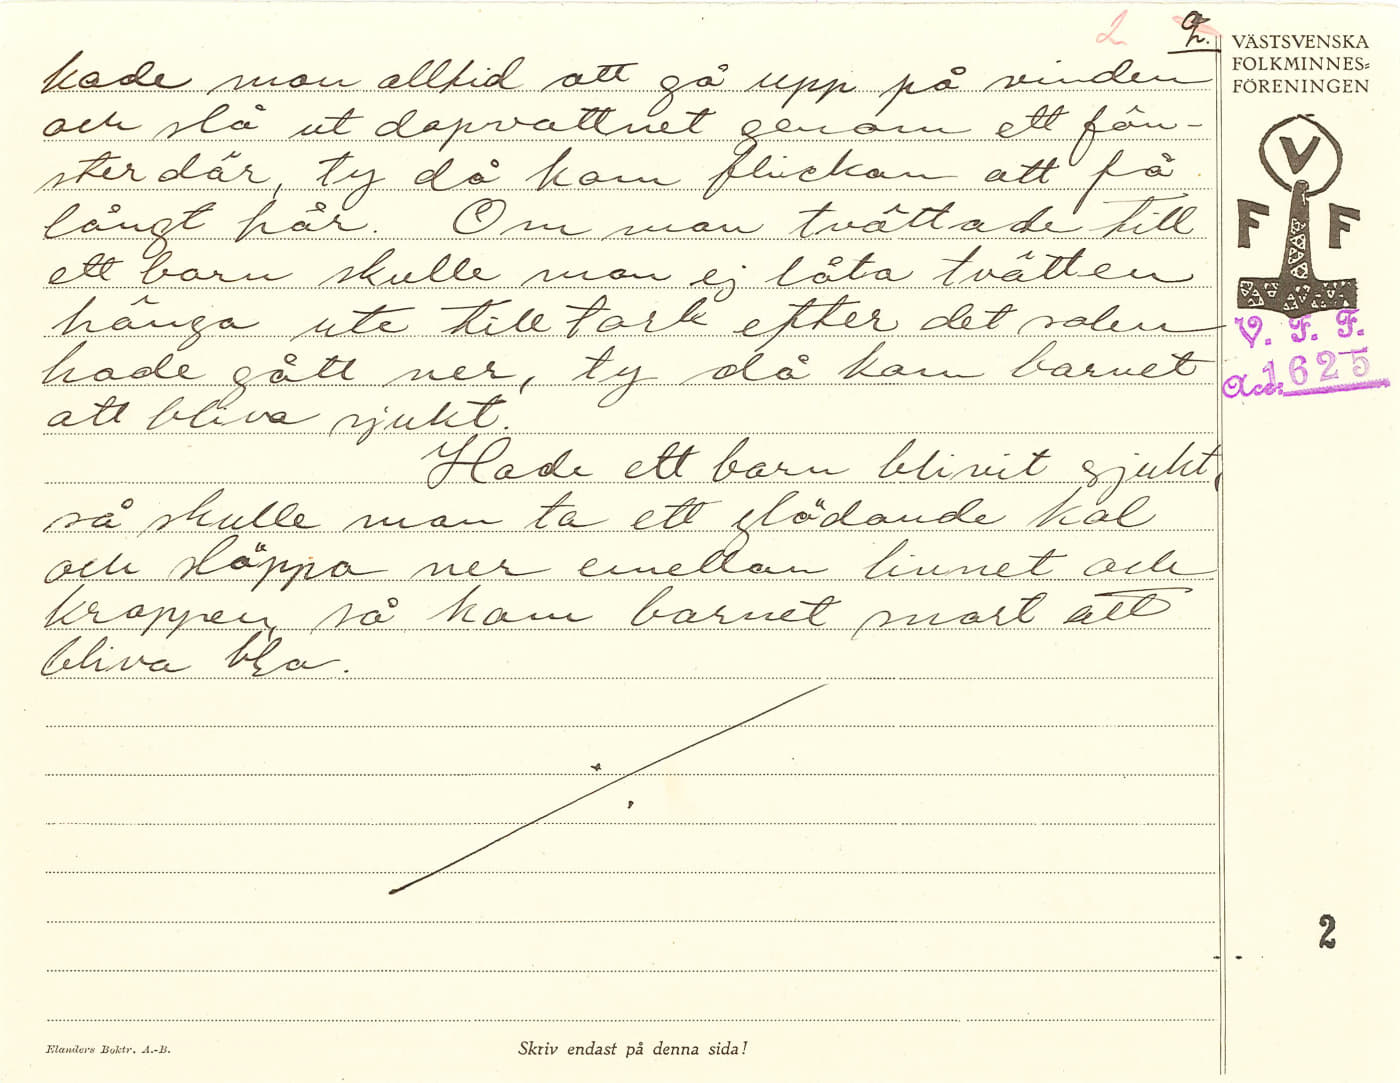 2 2.
VÄSTSVENSKA
FOLKMINNES=
FÖRENINGEN
V
F F
V. F. F.
Acc. 1625
kade man alltid att gå upp på vinden
och slå ut dopvattnet genom ett fön-
ster där, ty då kom flickan att få
långt hår. Om man tvättade till
ett barn skulle man ej låta tvätten
hänga ute till tork efter det solen
hade gått ner, ty då kom barnet
att bliva sjukt.
Hade ett barn blivit sjukt,
så skulle man ta ett glödande kol
och släppa ner emellan linnet och
kroppen, så kom barnet snart att
bliva bra.
2
Elanders Boktr. A.-B.
Skriv endast på denna sida!